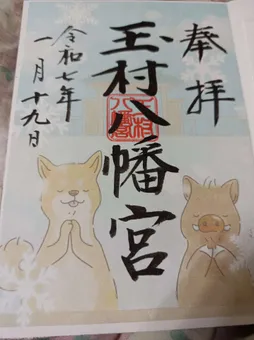 奉拝
玉村八幡宮
令和七年
一月十九日